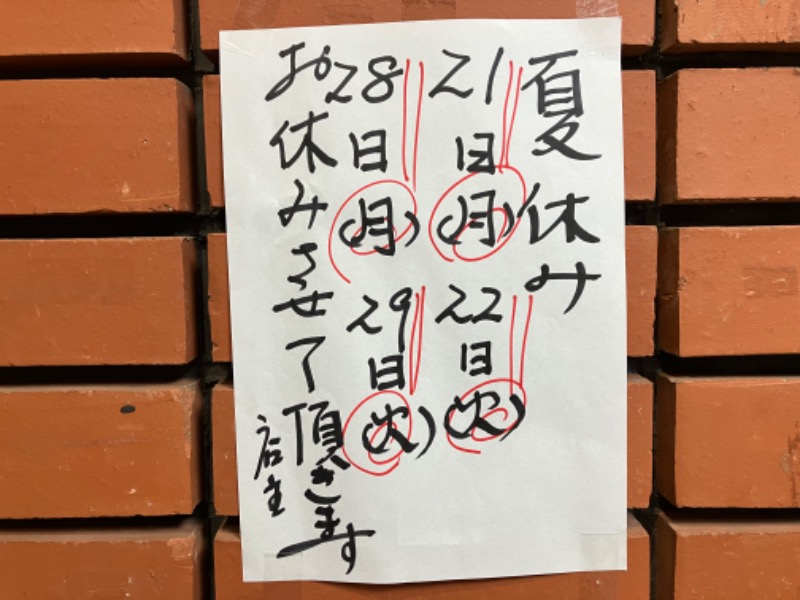 夏休み
21日(月) 22日(火)
28日(月) 29日(火)
お休みさせて頂きます
店主